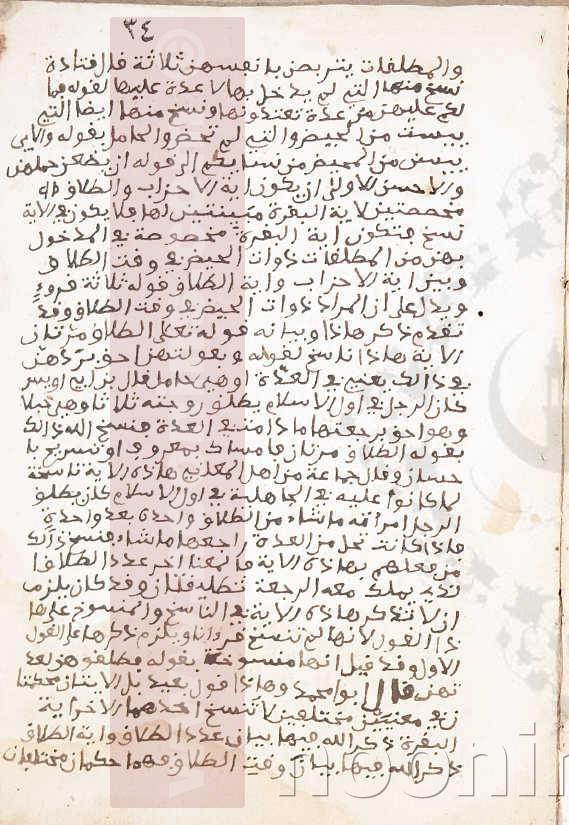 ٣٤
والمطلقات يتربصن بأنفسهن ثلاثة قال قتادة
نسخ منها التي لم يدخل بها لا عدة عليها لقوله فما
لكم عليهن من عدة تعتدونها ونسخ منها ايضا التي
يئست من الحيض والتي لم تحض والحامل بقوله والايي
يئسن من المحيض من نسائكم الى قوله ان يضعن حملهن
والاحسن الاولى ان يكون اية الاحزاب والطلاق
مخصصتين لاية البقرة مبينتين لها فلا يكون في الاية
نسخ فتكون اية البقرة مخصوصة في المدخول
بهن من المطلقات ذوات الحيض في وقت الطلاق
وبين اية الاحزاب واية الطلاق قوله ثلاثة قروء
ويدل على ان المراد ذوات الحيض في وقت الطلاق وقد
تقدم ذكر هاذا وبيانه قوله تعلى الطلاق مرتان
الاية هاذا ناسخ لقوله وبعولتهن احق بردهن
في ذالك يعني في العدة او هي حامل قال ابن ابي اويس
كان الرجل في اول الاسلام يطلق زوجته ثلاثا وهي حبلا
وهو احق برجعتها ما دامت في العدة فنسخ الله ذالك
بقوله الطلاق مرتان فامساك بمعروف او تسريح با
حسان وقال جماعة من اهل المعاني هاذه الاية ناسخة
لما كانوا عليه في الجاهلية في اول الاسلام كان يطلق
الرجل امرأته ما شاء من الطلاق واحدة بعد واحدة
فاذا كانت تحل من العدة راجعها ما شاء فنسخ ذالك
من فعلهم بهاذه الاية فالمعنا اخر عدد الطلاق ا
لذي يملك معه الرجعة تطليقتان وقد كان يلزم
ان لا تذكر هاذه الاية في الناسخ والمنسوخ على ها
ذا القول لانها لم تنسخ قرءانا ويلزم ذكرها على القول
الاول وقد قيل انها منسوخة بقوله فطلقوهن لعد
تهن قال ابو محمد وهاذا قول بعيد بل الايتان محكمتا
ن في معنيين مختلفين لا تنسخ احدهما الاخر اية
البقرة ذكر الله فيها بيان عدد الطلاق واية الطلاق
ذكر الله فيها بيان وقت الطلاق فهما حكمان مختلفان
noonin